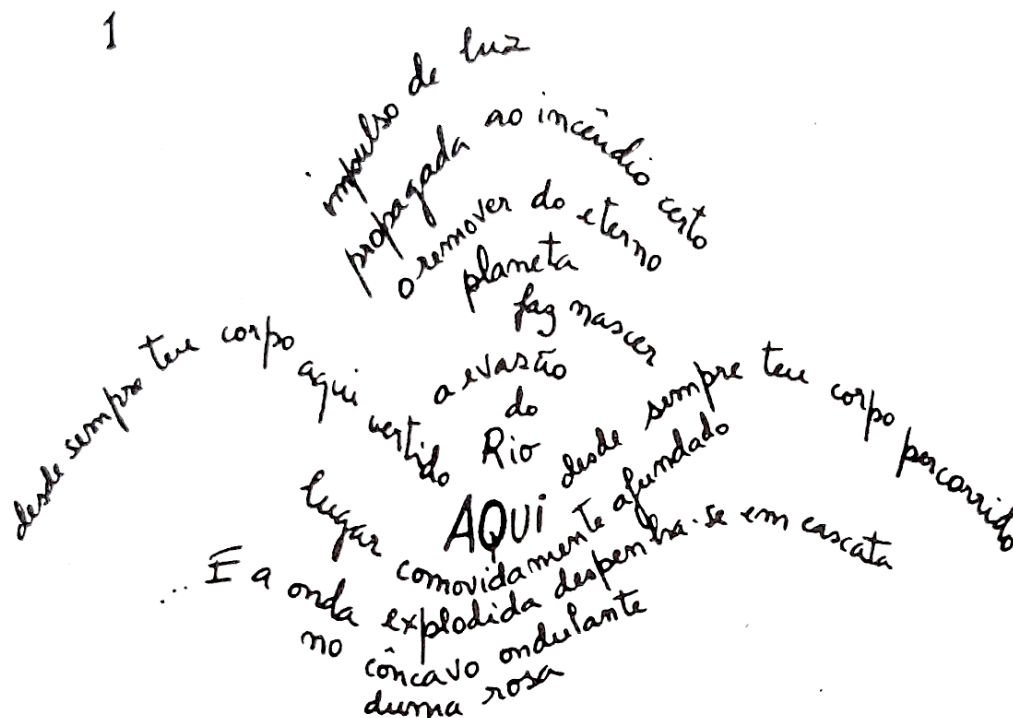 1
impulso de luz
propagada ao incêndio certo
o remover do eterno
planeta
faz nascer
a evasão
do
Rio
desde sempre teu corpo aqui vertido
AQUi
desde sempre teu corpo percorrido
lugar comovidamente afundado
... E a onda explodida despenha-se em cascata
no côncavo ondulante
duma rosa